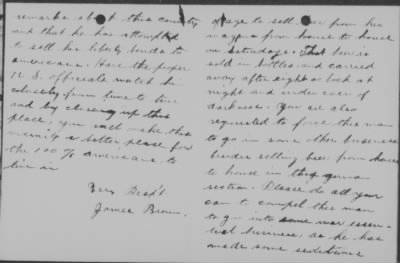 remarks about this country
and that he has attempted
to sell his liberty bonds to
americans. Have the proper
U.S. officials watch him
closely from time to time
and by closing up this
place, you will make this
vicinity a better place for
the 100% americans to
live in
Very Resp't
James Brown.
to sell beer from his
wagon from house to house
on Saturdays. That beer is
sold in bottles and carried
away after eight o'clock at
night and under cover of
darkness. You are also
requested to force this man
to go in some other business
besides selling beer from house
to house in this
section. Please do all your
can to compel this man
to go into some war essen-
tial business, as he has
made some seditious